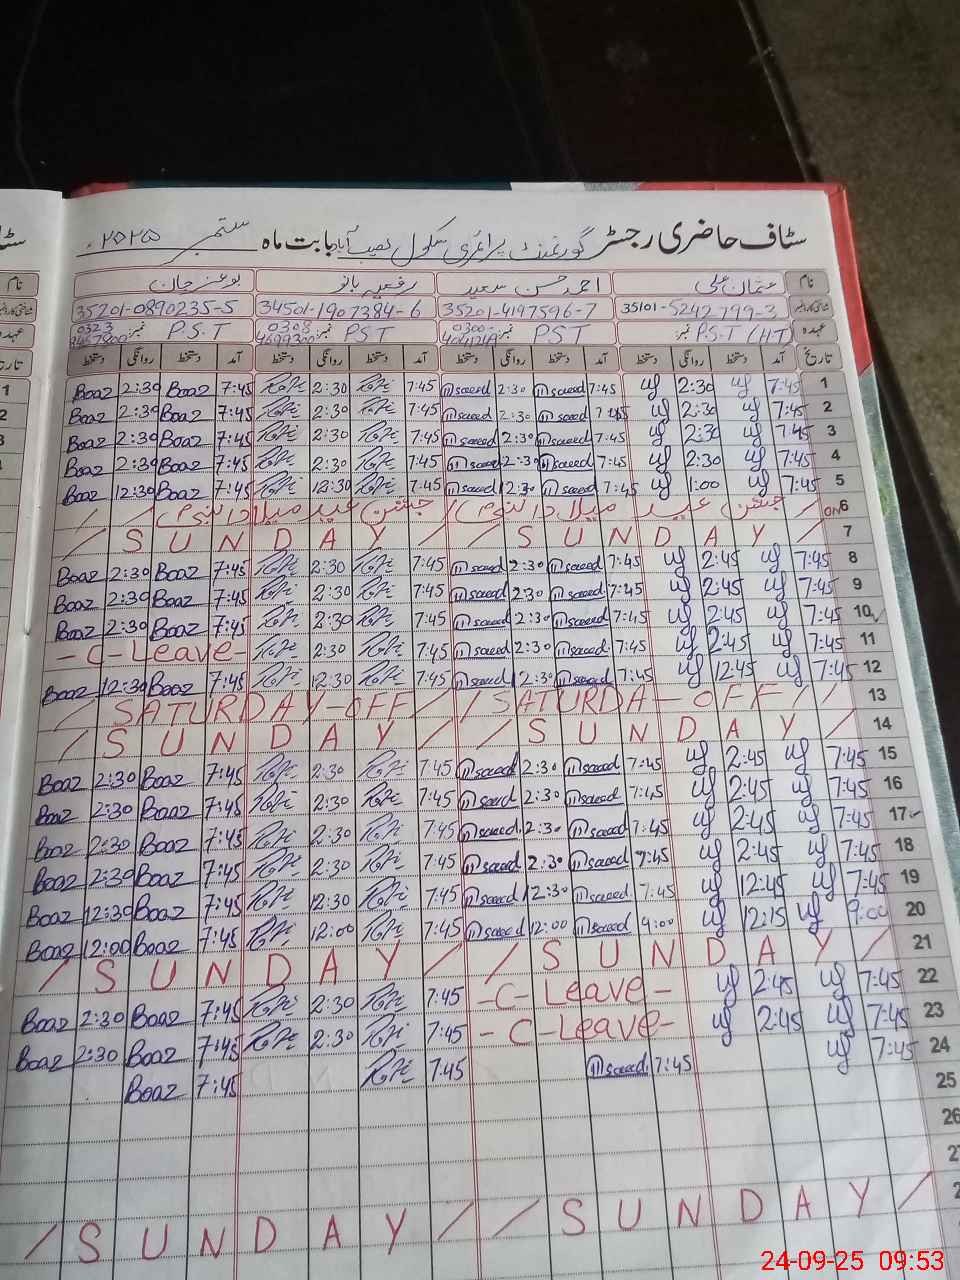 سٹاف حاضری رجسٹر گورنمنٹ پرائمری سکول نصیب آباد بابت ماہ ستمبر ۲۰۲۵ء
نام عثمان علی احمد حسن سعید رفعیہ بانو بوعز جان
35101-5242799-3 35201-4197596-7 34501-1907384-6 35201-0890235-5
عہدہ P.S.T (H.T) نمبر: PST نمبر: 0300- PST نمبر: 0308 P.S.T نمبر: 0323
تاریخ آمد دستخط روانگی دستخط آمد دستخط روانگی دستخط آمد دستخط روانگی دستخط آمد دستخط روانگی دستخط
Boaz 2:30 Boaz 7:45 2:30 7:45 saeed 2:30 saeed 7:45 2:30 7:45 1
Boaz 2:30 Boaz 7:45 2:30 7:45 saeed 2:30 saeed 7:45 2:30 7:45 2
Boaz 2:30 Boaz 7:45 2:30 7:45 saeed 2:30 saeed 7:45 2:30 7:45 3
Boaz 2:30 Boaz 7:45 2:30 7:45 saeed 2:30 saeed 7:45 2:30 7:45 4
Boaz 12:30 Boaz 7:45 12:30 7:45 saeed 12:30 saeed 7:45 1:00 7:45 5
/ جشن عید میلادالنبیؐ / جشن عید میلادالنبیؐ / 6
/ S U N D A Y / / S U N D A Y / 7
Boaz 2:30 Boaz 7:45 2:30 7:45 saeed 2:30 saeed 7:45 2:45 7:45 8
Boaz 2:30 Boaz 7:45 2:30 7:45 saeed 2:30 saeed 7:45 2:45 7:45 9
Boaz 2:30 Boaz 7:45 2:30 7:45 saeed 2:30 saeed 7:45 2:45 7:45 10
- C - Leave - 2:30 7:45 saeed 2:30 saeed 7:45 2:45 7:45 11
Boaz 12:30 Boaz 7:45 12:30 7:45 saeed 12:30 saeed 7:45 12:45 7:45 12
/ SATURDAY-OFF / / SATURDA-OFF / / 13
/ S U N D A Y / / S U N D A Y / 14
Boaz 2:30 Boaz 7:45 2:30 7:45 saeed 2:30 saeed 7:45 2:45 7:45 15
Boaz 2:30 Boaz 7:45 2:30 7:45 saeed 2:30 saeed 7:45 2:45 7:45 16
Boaz 2:30 Boaz 7:45 2:30 7:45 saeed 2:30 saeed 7:45 2:45 7:45 17
Boaz 2:30 Boaz 7:45 2:30 7:45 saeed 2:30 saeed 7:45 2:45 7:45 18
Boaz 12:30 Boaz 7:45 12:30 7:45 saeed 12:30 saeed 7:45 12:45 7:45 19
Boaz 12:00 Boaz 7:45 12:00 7:45 saeed 12:00 saeed 9:00 12:15 9:00 20
/ S U N D A Y / / S U N D A Y / 21
Boaz 2:30 Boaz 7:45 2:30 7:45 - C - Leave - 2:45 7:45 22
Boaz 2:30 Boaz 7:45 2:30 7:45 - C - Leave - 2:45 7:45 23
Boaz 7:45 7:45 saeed 7:45 7:45 24
25
26
/ S U N D A Y / / S U N D A Y /
24-09-25 09:53